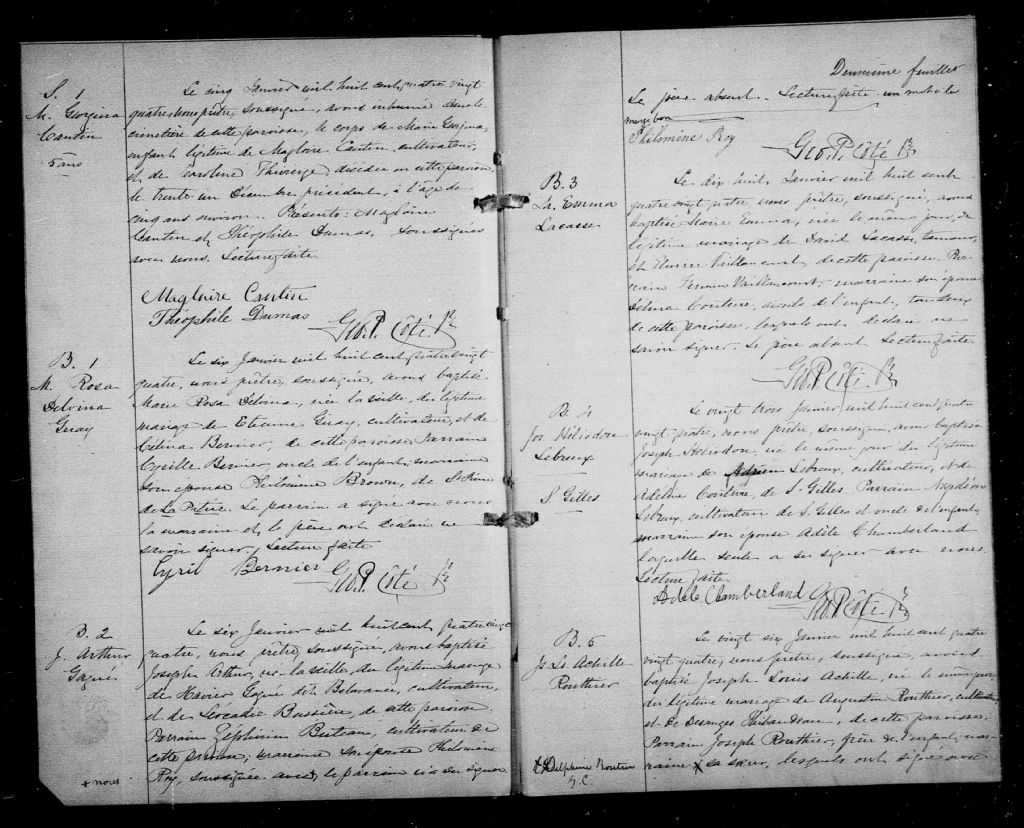 S. 1
M. Georgina
Cantin
5 ans
Le cinq Janvier mil huit cent quatre vingt
quatre, nous prêtre, soussigné, avons inhumé dans le
cimetière de cette paroisse, le corps de Marie Georgina,
enfant légitime de Magloire Cantin, cultivateur,
et de Caroline Thivierge, décédée en cette paroisse
le trente un Décembre précédent, à l'âge de
cinq ans environ. Présents: Magloire
Cantin et Théophile Dumas, soussignés
avec nous. Lecture faite.
Magloire Cantin
Théophile Dumas
Geo. P. Côté Ptre
B. 1
M. Rosa
Delvina
Guay
Le six Janvier mil huit cent quatre vingt
quatre, nous prêtre, soussigné, avons baptisé
Marie Rosa Delvina, née la veille, du légitime
mariage de Etienne Guay, cultivateur, et de
Célina Bernier, de cette paroisse. Parrain
Cyrille Bernier, oncle de l'enfant, marraine
son épouse Philomène Brown, de St
de La Patrie. Le parrain a signé avec nous
la marraine et le père ont déclaré ne
savoir signer. Lecture faite
Cyril Bernier
Geo. P. Côté Ptre
B. 2
J. Arthur
Gagné
Le six Janvier mil huit cent quatre vingt
quatre, nous, prêtre, soussigné, avons baptisé
Joseph Arthur, né la veille du légitime mariage
de Xavier Gagné dit Belavance, cultivateur,
et de Léocadie Bussière, de cette paroisse.
Parrain Zéphirin Buteau, cultivateur de
cette paroisse, marraine son épouse Philomène
Roy, soussignée avec, le parrain n'a su signer
+ nous
Deuxième feuillet
Le père absent. Lecture faite. un mot à la
marge bon
Philomine Roy
Geo. P. Côté Ptre
B. 3
La. Emma
Lacasse
Le dix huit, Janvier mil huit cent
quatre vingt quatre, nous prêtre, soussigné, avons
baptisé Marie Emma, née le même jour, du
légitime mariage de David Lacasse, tanneur,
et Vaillancourt, de cette paroisse. Par-
rain Vaillancourt, marraine son épouse
Delina Couture, aïeuls de l'enfant, tous deux
de cette paroisse, lesquels ont déclaré ne
savoir signer. Le père absent. Lecture faite
Geo. P. Côté Ptre
B. 4
Jos Héliodore
Lebreux
St Gilles
Le vingt trois Janvier mil huit cent quatre
vingt quatre, nous prêtre, soussigné, avons baptisé
Joseph Héliodore, né le même jour du légitime
mariage de Adrien Lebreux, cultivateur, et de
Adeline Couture, de St Gilles. Parrain Napoléon
Lebreux, cultivateur de St Gilles et oncle de l'enfant
marraine son épouse Adèle Chamberland
laquelle seule a su signer avec nous
Lecture faite.
Adele Chamberland
Geo. P. Côté Ptre
B. 5
Js Ls Achille
Routhier
Le vingt six Janvier mil huit cent quatre
vingt quatre, nous prêtre, soussigné, avons
baptisé Joseph Louis Achille, né le même jour
du légitime mariage de Augustin Routhier, cultivateur
et de Desanges Thibaudeau, de cette paroisse.
Parrain Joseph Routhier, frère de l'enfant, mar-
raine x sa sœur, lesquels ont signé avec
x Delphine Routhier
G.C.